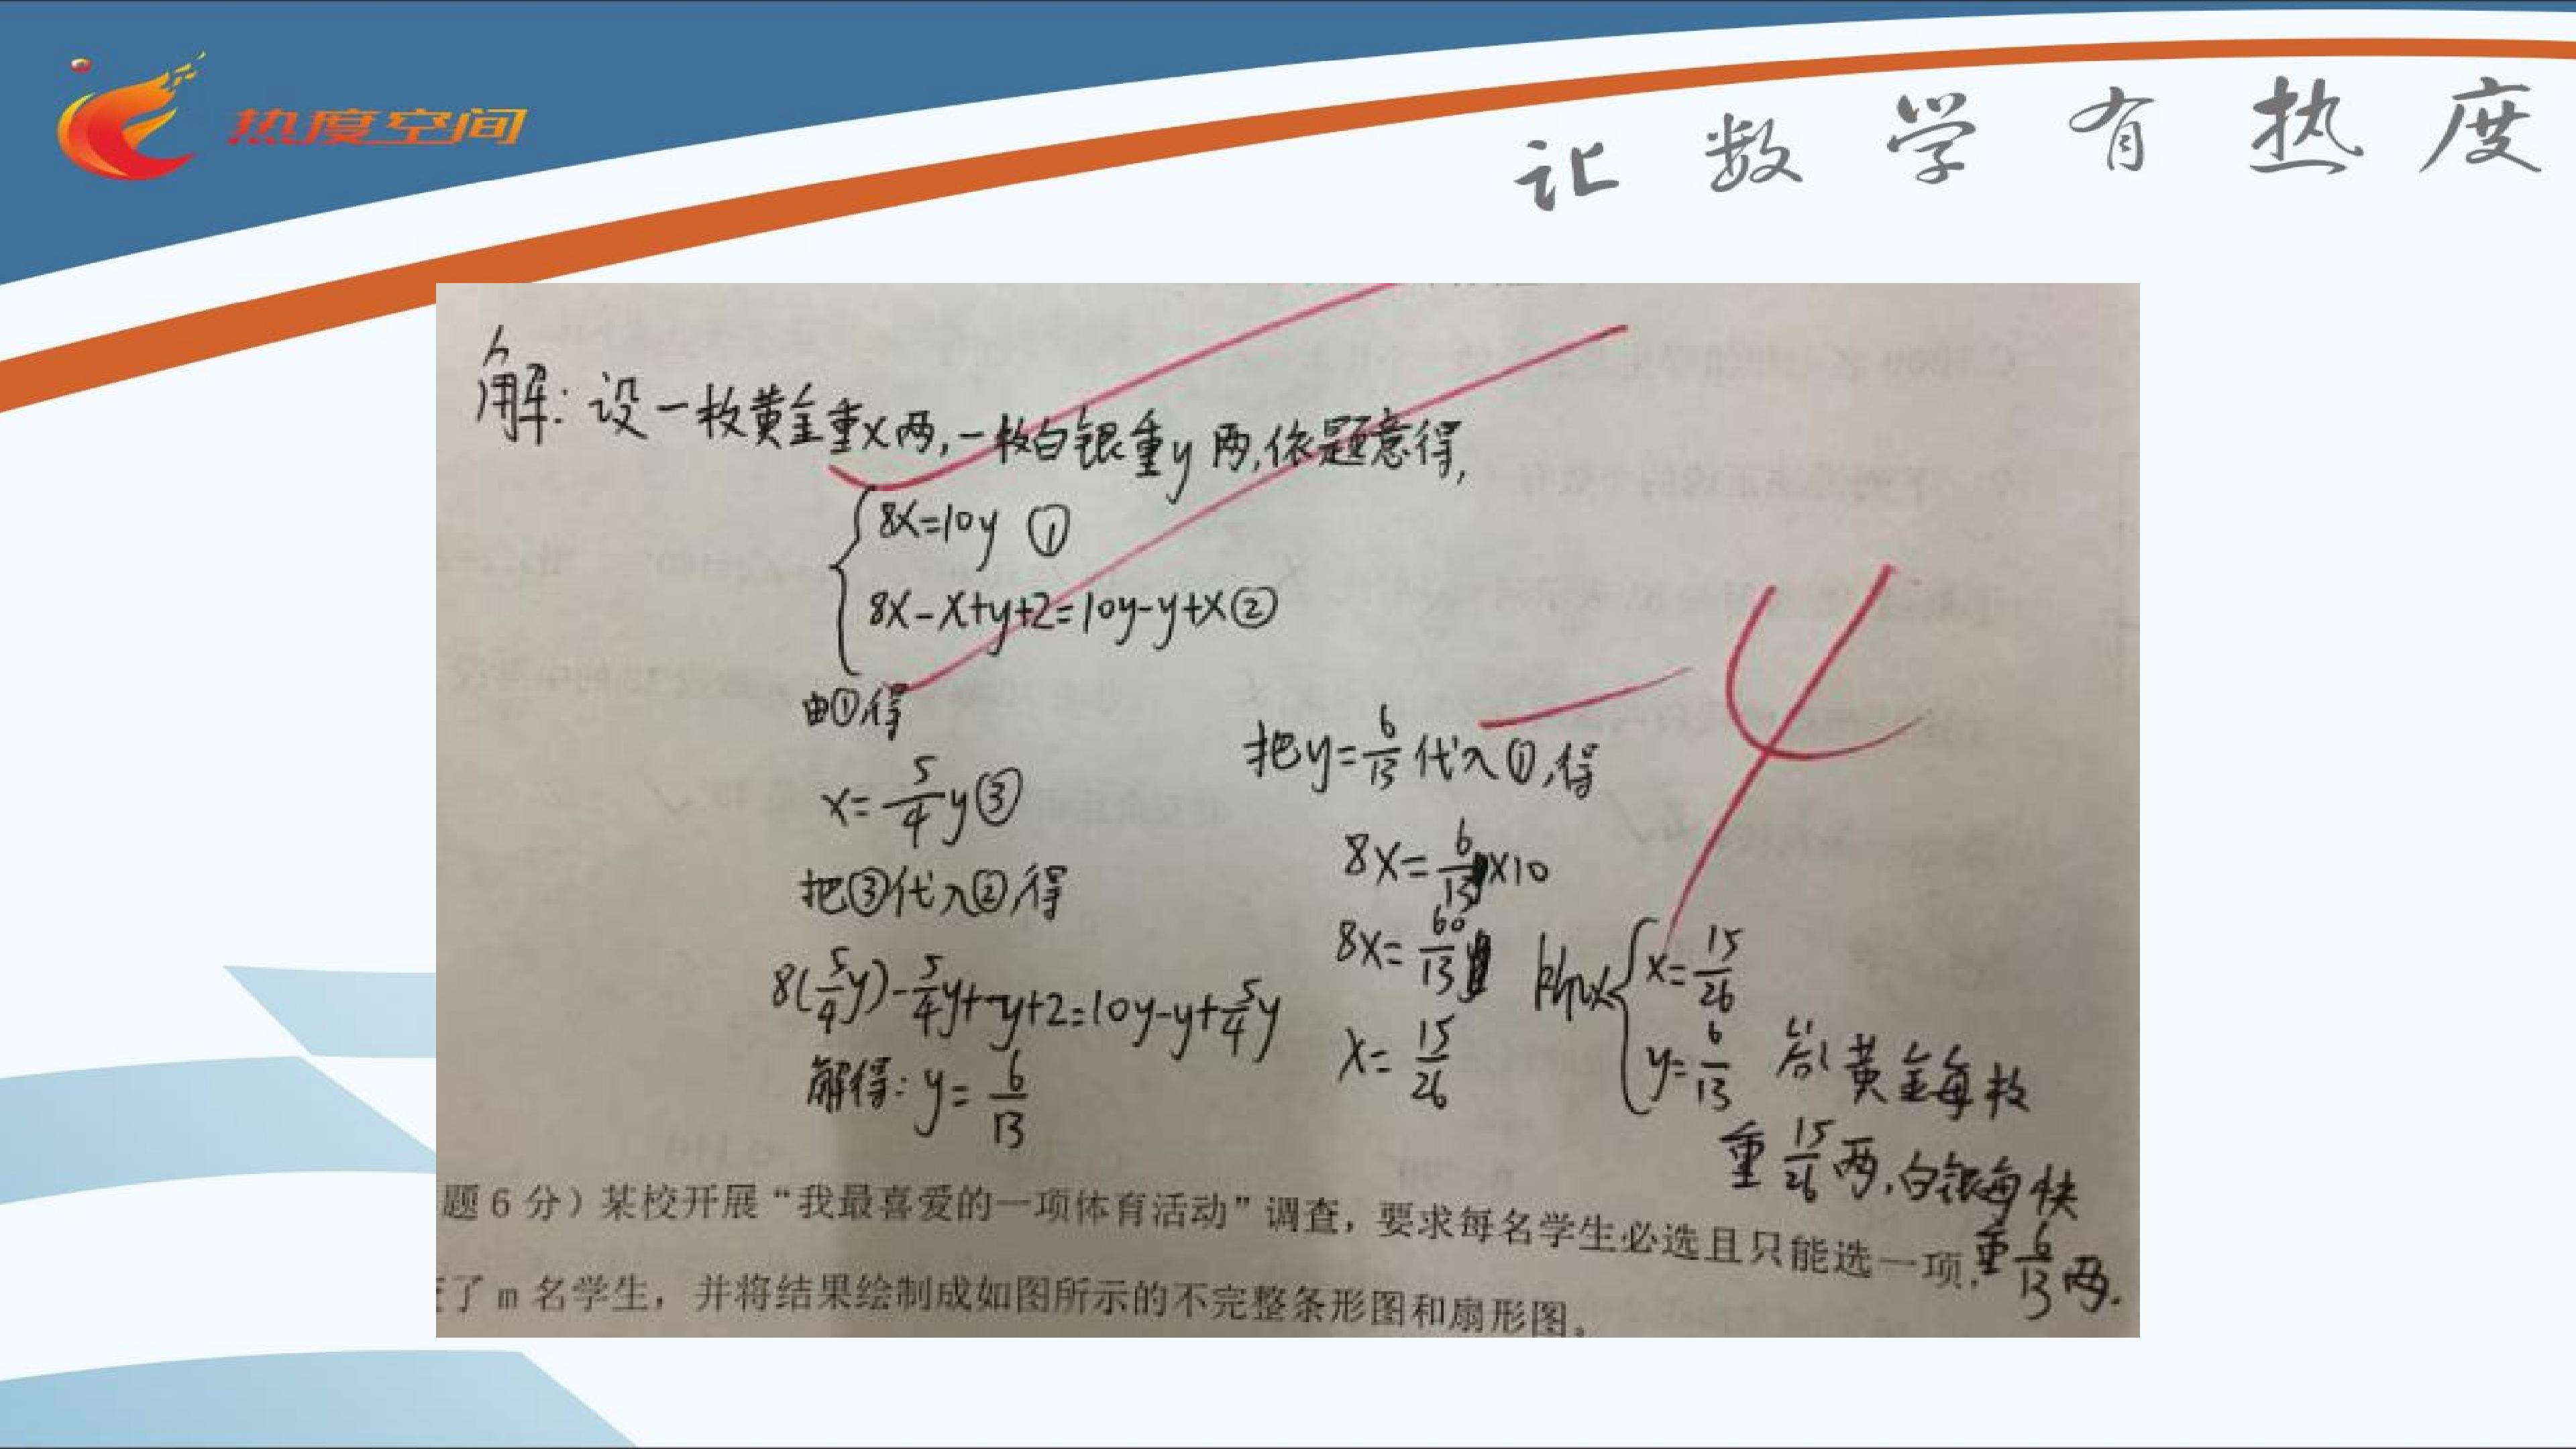 热度空间
让数学有热度
解：设一枚黄金重x两,一枚白银重y两,依题意得,
8x=10y ①
8x-x+y+2=10y-y+x②
由①,得
x=5/4y③
把③代入②,得
8(5/4y)-5/4y+y+2=10y-y+5/4y
解得：y=6/13
把y=6/13代入①,得
8x=6/13×10
8x=60/13
x=15/26
所以{x=15/26
y=6/13
答：黄金每枚
重15/26两,白银每快
重6/13两.
4
题6分）某校开展“我最喜爱的一项体育活动”调查，要求每名学生必选且只能选一项，
了m名学生，并将结果绘制成如图所示的不完整条形图和扇形图。